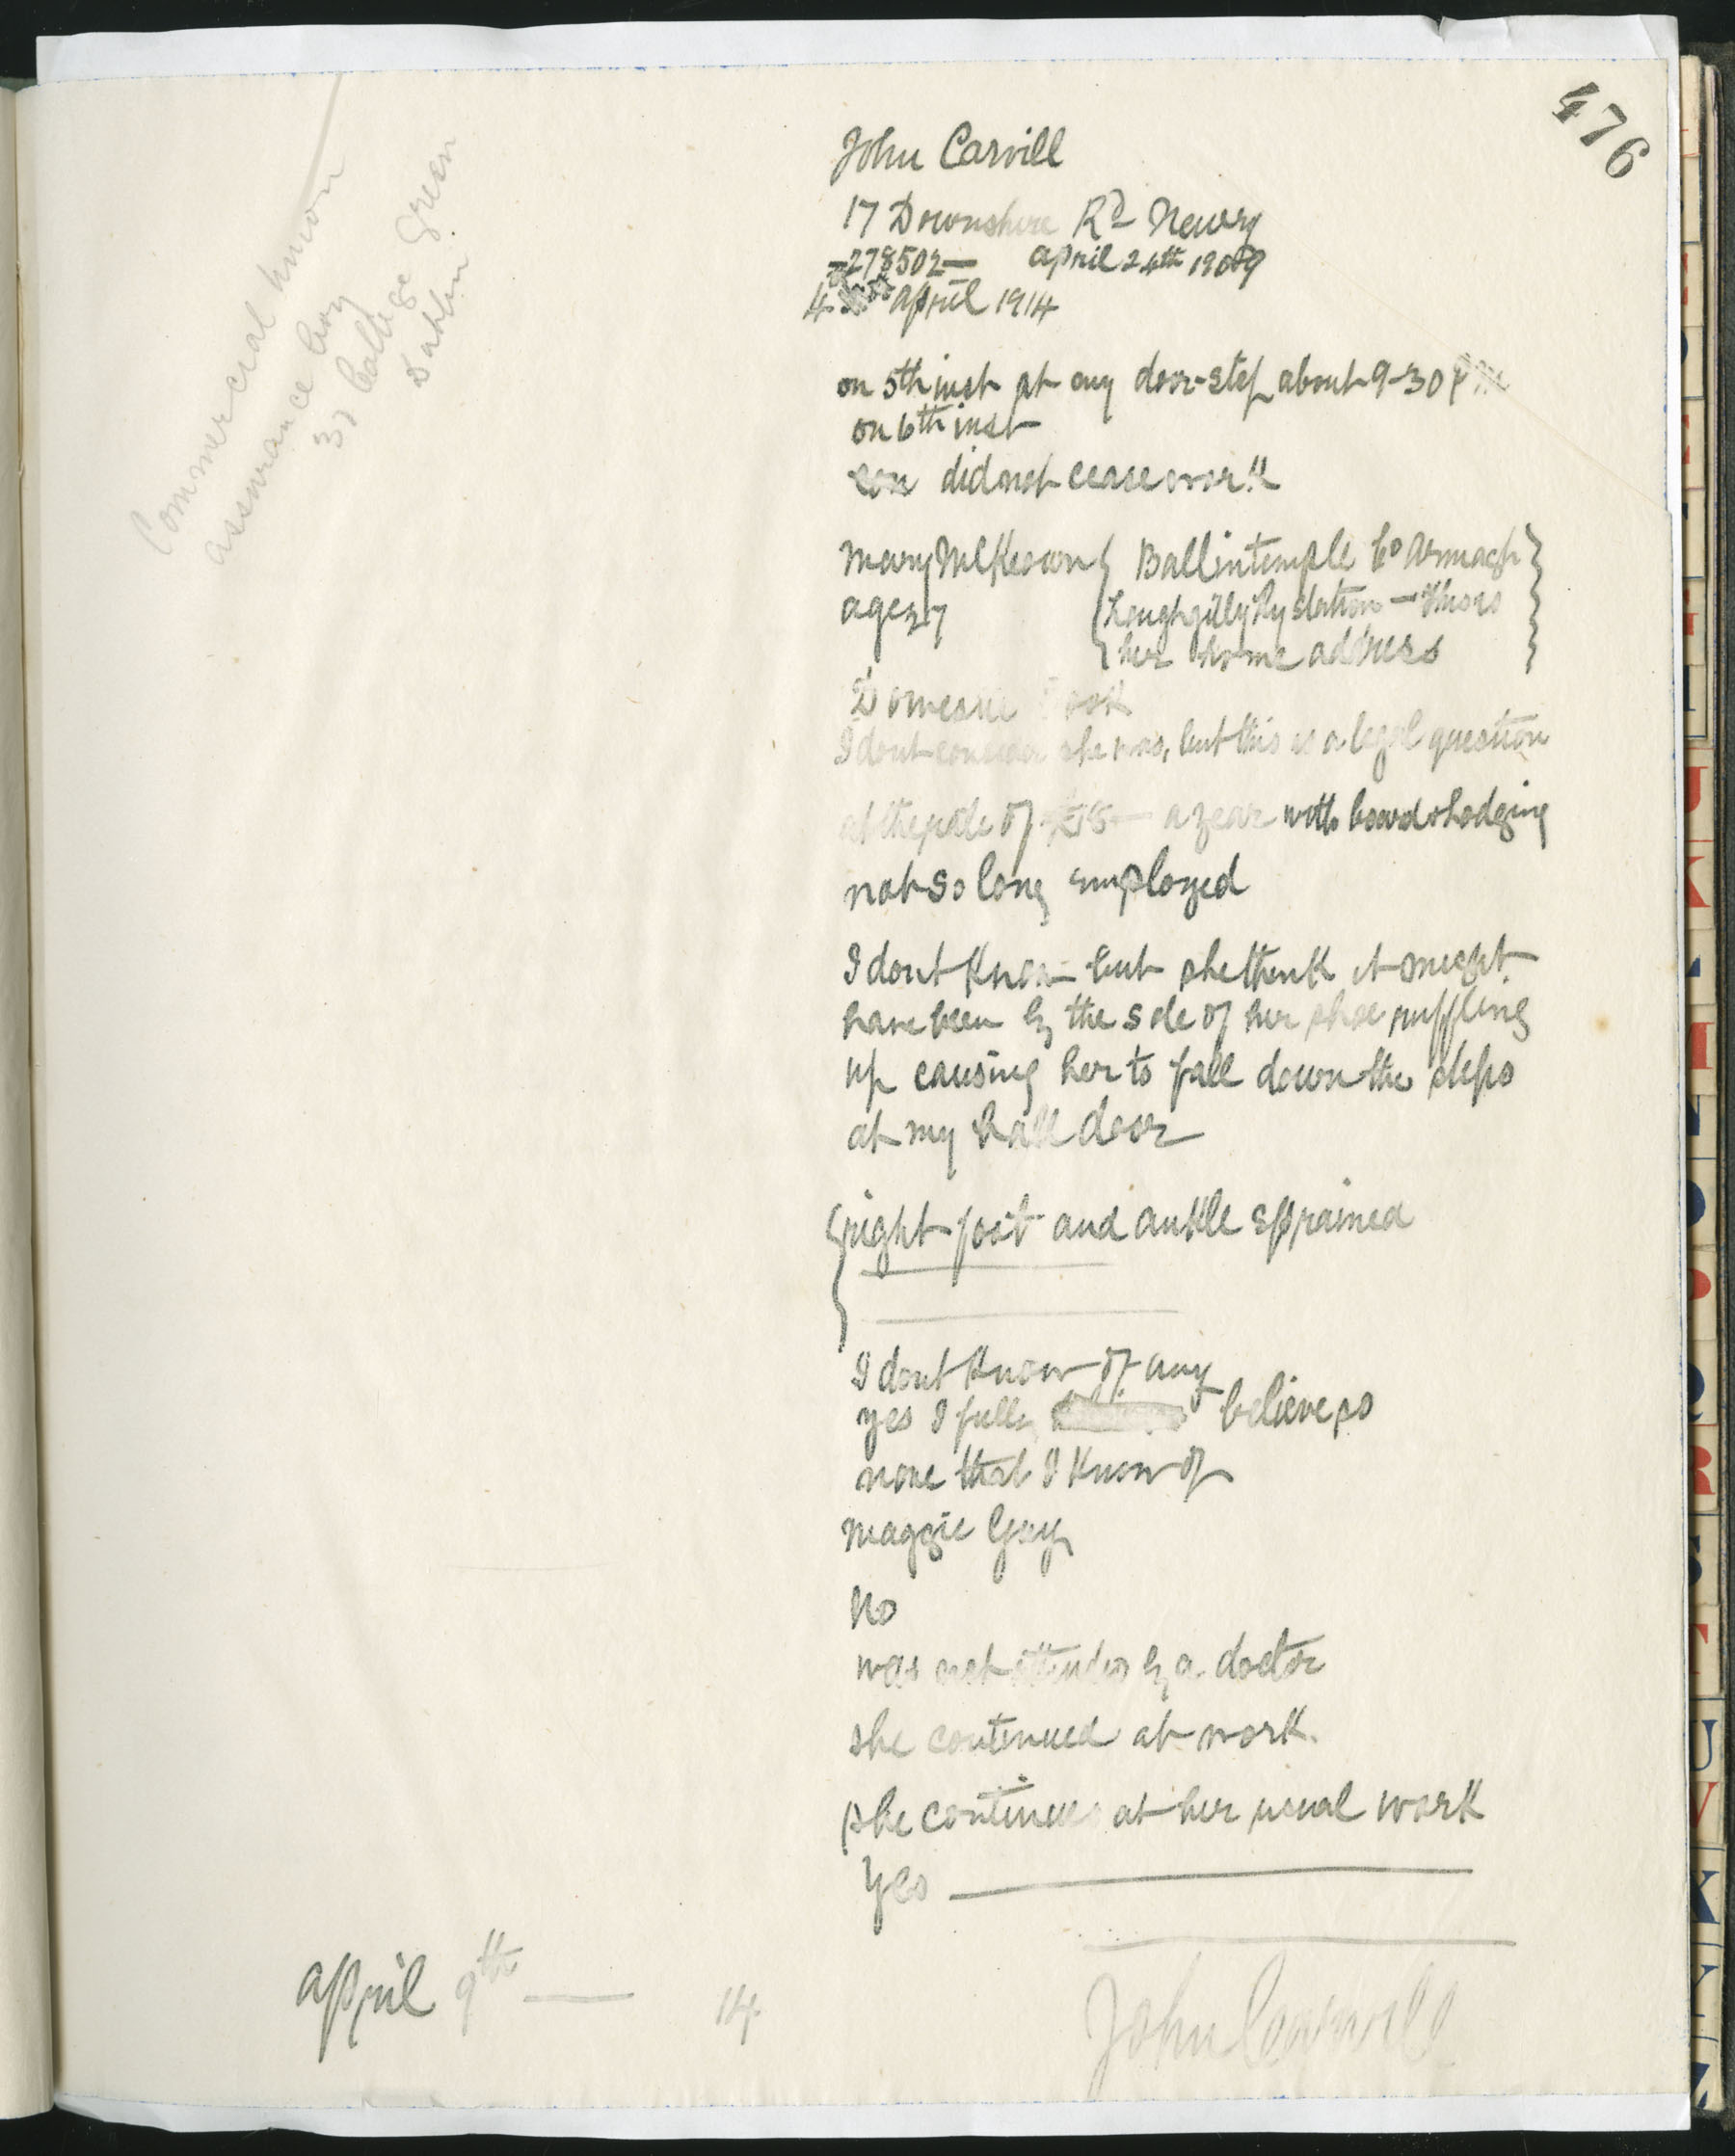 476
Commercial Union
Assurance Coy
37 College Green
Dublin
John Carvill
17 Downshire Rd Newry
-278502- April 24th 1909
4 April 1914
on 5th inst at my door-step about 9-30
on 6th inst
did not cease work
Mary McKeown { Ballintemple Co Armagh }
age 27 { Loughgilly Ry Station - this is }
{ her home address }
Domestic Cook
I dont consider she was, but this is a legal question
at the rate of £18 - a year with board & lodging
not so long employed
I dont know but she think it might
have been by the sole of her shoe ruffling
up causing her to fall down the steps
at my hall door
right foot and ankle sprained
I dont know of any
yes I fully believe so
none that I know of
Maggie
No
was not attended by a doctor
she continued at work.
she continues at her usual work
Yes
April 9th — 14
John Carvill